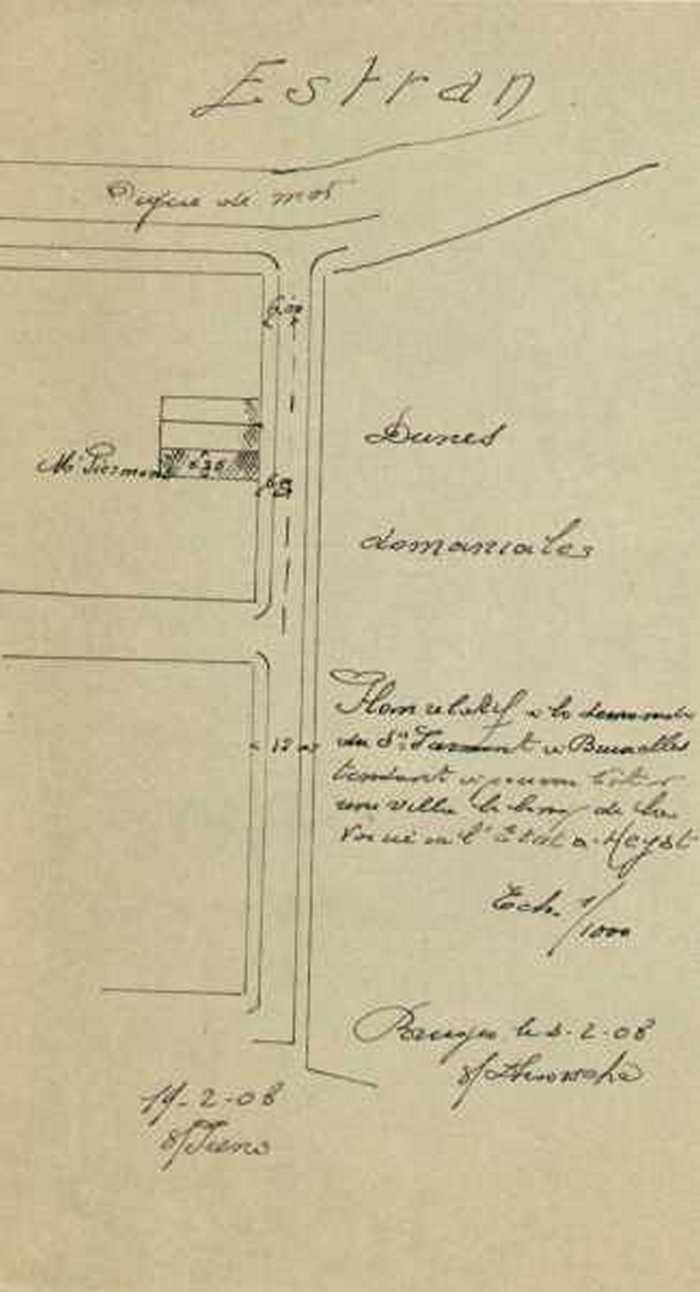 Estran
Digue de mer
6.00
Dunes
Mr Piermont
6.30
6.00
domaniales
Plan relatif à la demande
du Sr. à Bruxelles
tendant à pouvoir bâtir
une villa le long de la
voirie de l'Etat à Heyst
12 m
Ech. 1/1000
Bruges le 8-2-08
s/
19-2-08
s/